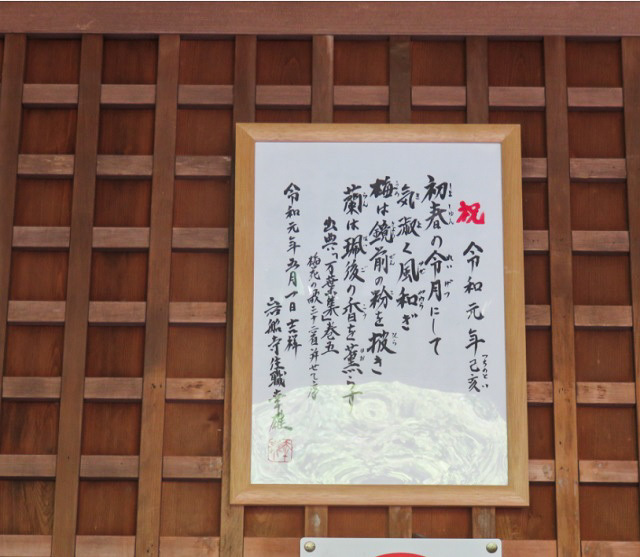 祝 令和元年己亥
初春の令月にして
気淑く風和ぎ
梅は鏡前の粉を披き
蘭は珮後の香を薫らす
出典:「万葉集」巻五
梅花の歌三十二首并せて序
令和元年五月一日吉祥
岩船寺住職